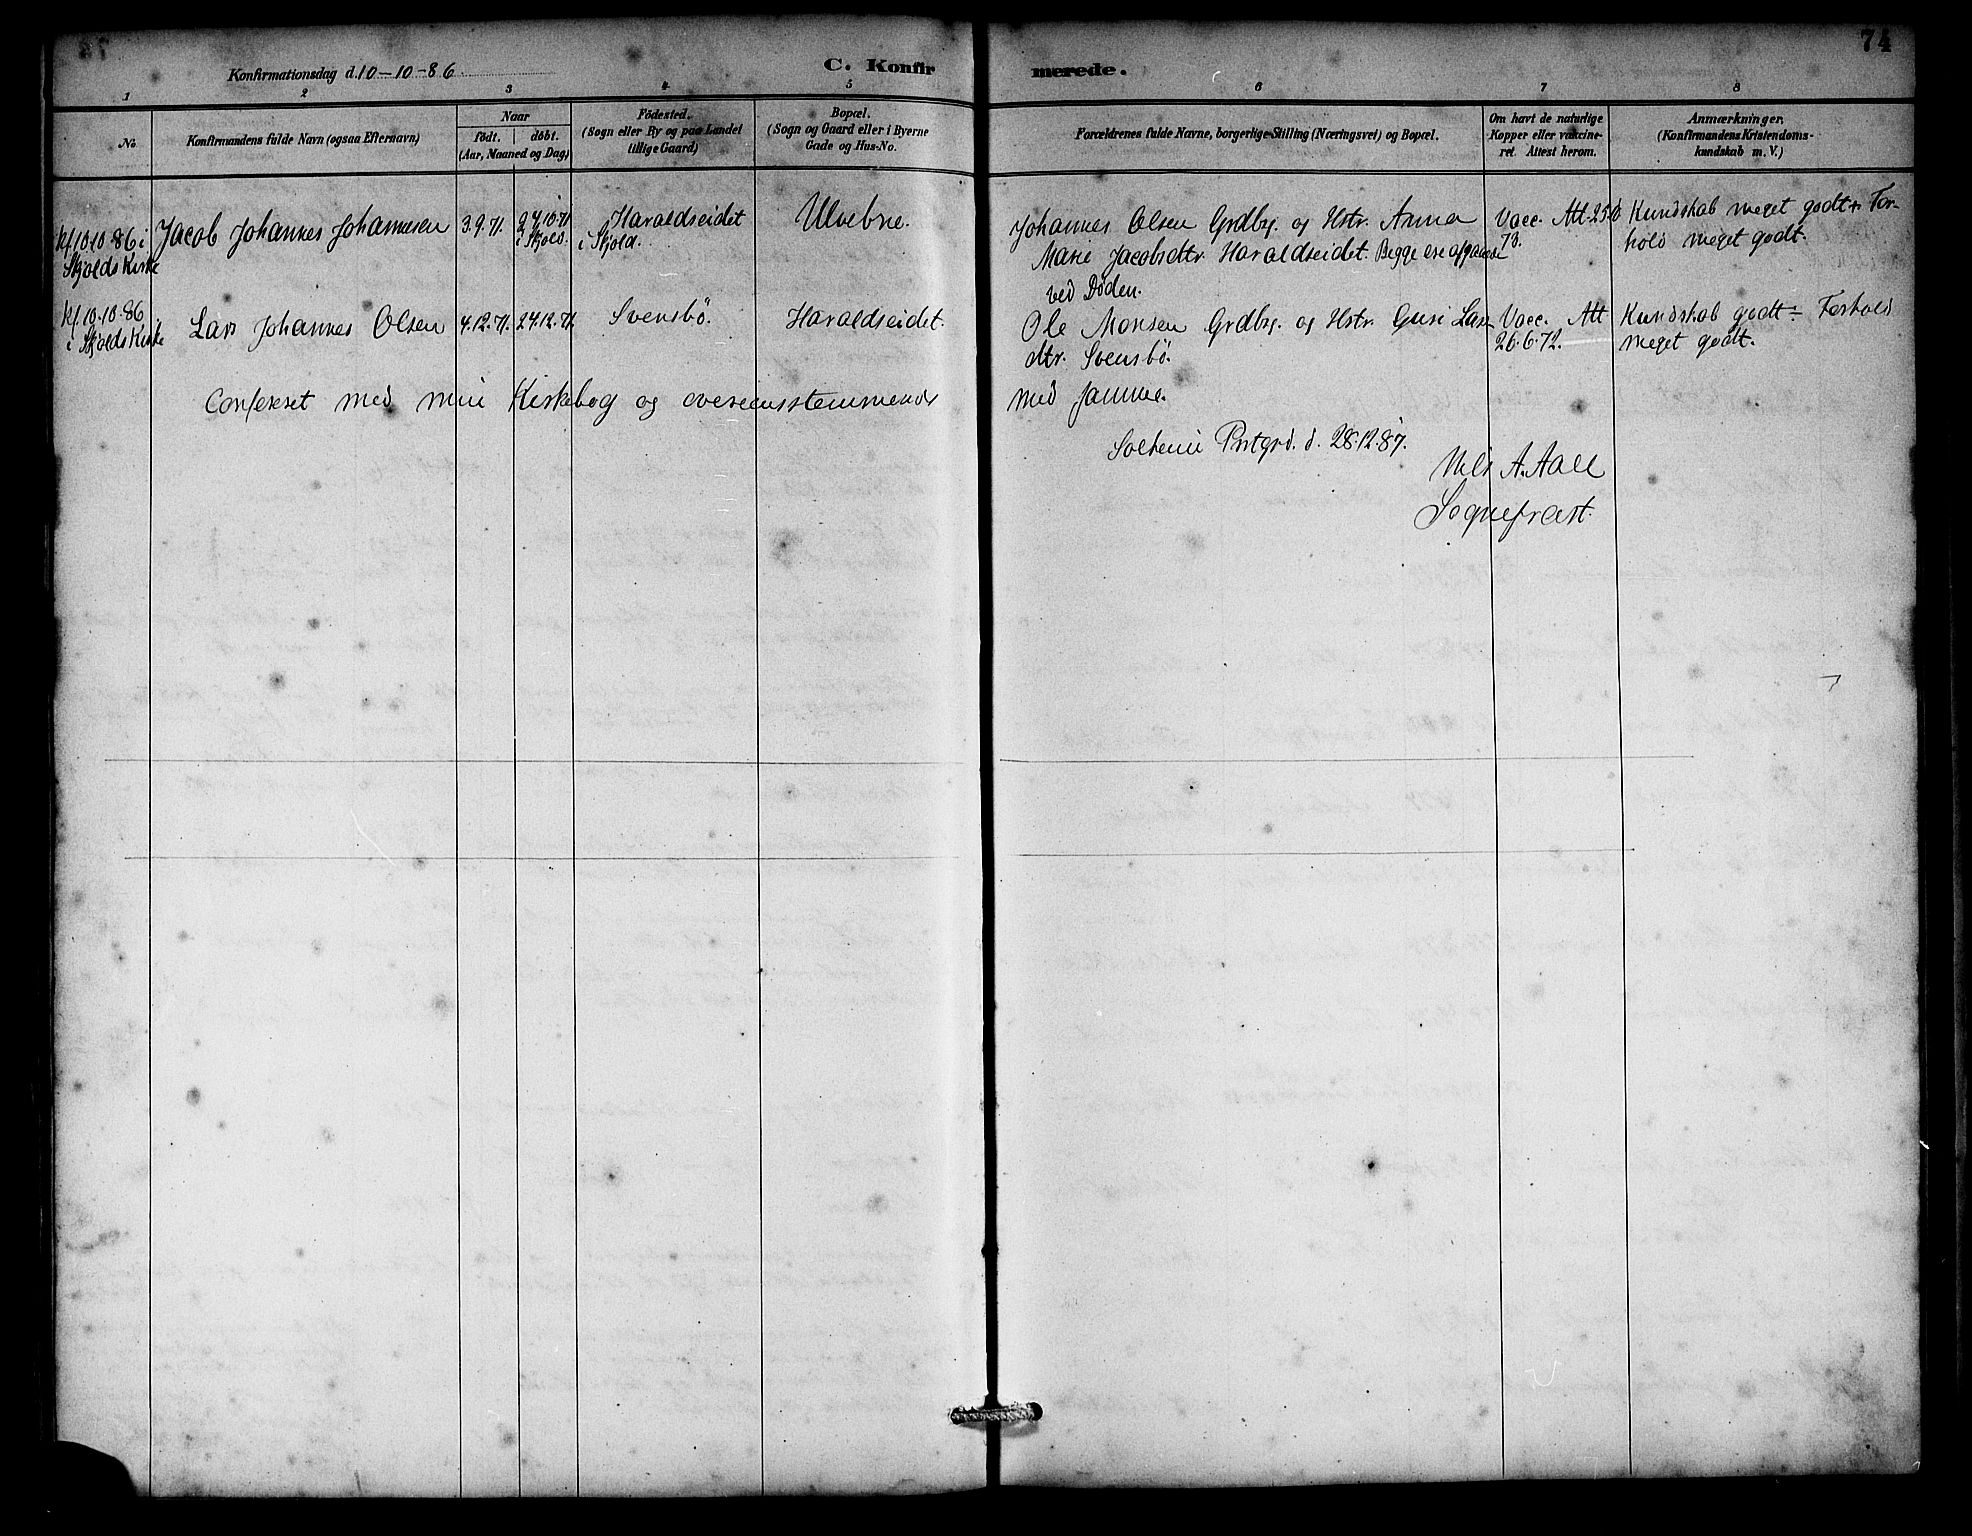 74
Konfirmationsdag d. 10-10-86
C. Konfirmerede.
1 2 3 4 5 6 7 8
No.
Konfirmandens fulde Navn (ogsaa Efternavn)
Naar
født. døbt.
(Aar, Maaned og Dag)
Fødested.
(Sogn eller By og paa Landet
tillige Gaard)
Bopæl.
(Sogn og Gaard eller i Byerne
Gade og Hus-No.
Forældrenes fulde Navne, borgerlige Stilling (Næringsvei) og Bopæl.
Om havt de naturlige
Kopper eller vaccine-
ret. Attest herom.
Anmærkninger,
(Konfirmandens Kristendoms-
kundskab m. V.)
Kf. 10.10 86 i
Skjolds Kirke
Jacob Johannes Johannesen
3.9.71.
24.10.71
i Skjold.
Haraldseidet
i Skjold.
Ulvebne.
Johannes Olsen Grdbg. og Hstr. Anna
Marie Jacobsdtr. Haraldseidet. Begge ere afgaaede
ved Døden.
Vacc. Att.
73.
Kundskab meget godt + For-
hold meget godt.
Kf. 10.10.86
i Skjolds Kirke
Lars Johannes Olsen
4.12.71.
24.12.71.
Svensbö.
Haraldseidet.
Ole Monsen Grdbg. og Hstr. Guri Lars-
dtr. Svensbö.
Vacc. Att
26.6.72.
Kundskab godt ÷ Forhold
meget godt.
Confereret med min Kirkebog og overensstemmende
med samme.
Solheim Prstgrd. d. 28.12.87.
Nils A. Aall
Sogneprest.